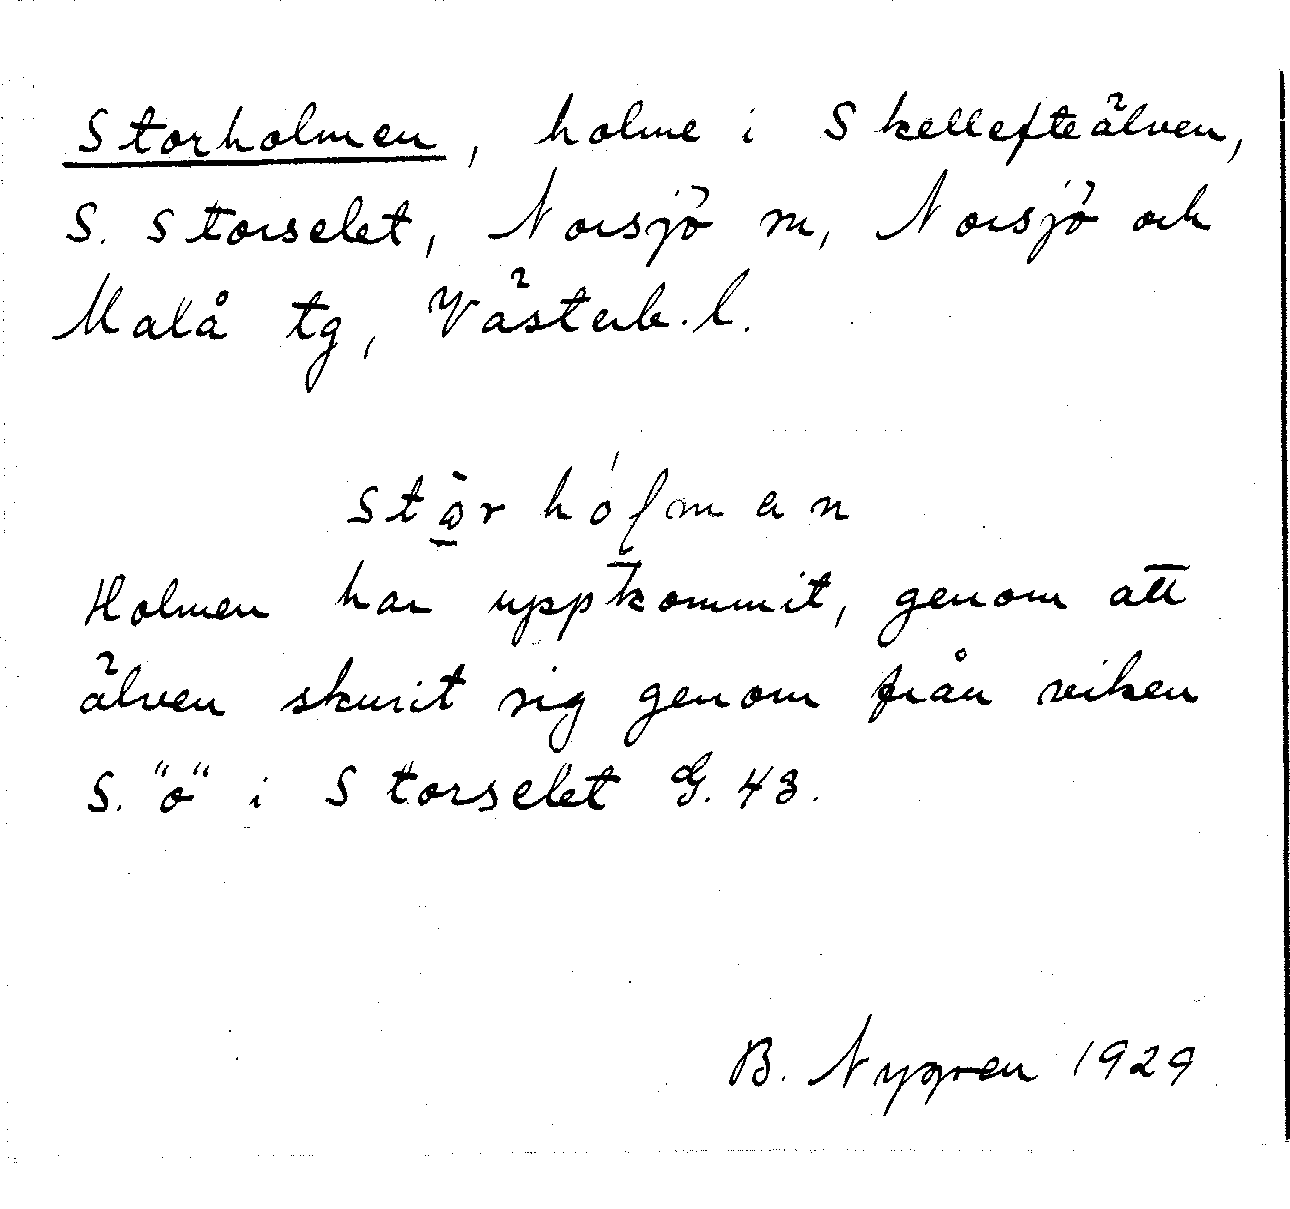 Storholmen, holme i Skellefteälven,
S. Storselet, Norsjö sn, Norsjö och
Malå tg, Västerb. l.
stō̲r hólman
Holmen har uppkommit, genom att
älven skurit sig genom från viken
S. "o" i Storselet G. 43.
B. Nygren 1929